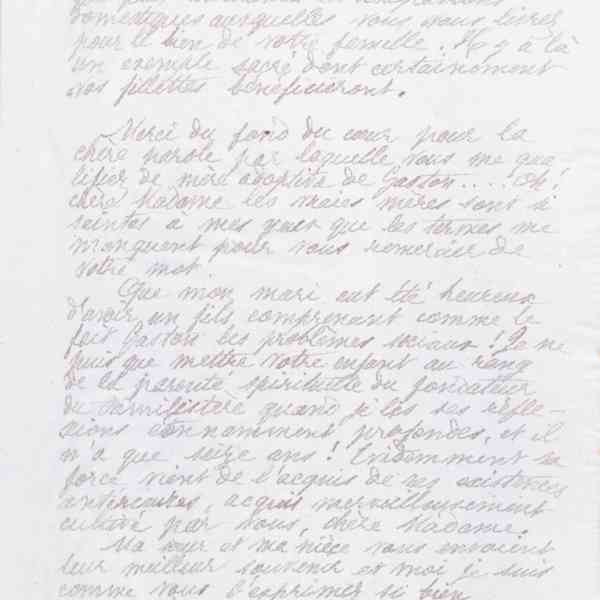 domestiques auxquelles vous vous livrez
pour le bien de votre famille. Il y a là
un exemple sacré dont certainement
vos fillettes bénéficieront.
Merci du fond du cœur pour la
chère parole par laquelle vous me qua
lifiez de mère adoptive de Gaston.... Oh!
chère Madame les vraies mères sont si
saintes à mes yeux que les termes me
manquent pour vous remercier de
votre mot.
Que mon mari eut été heureux
d'avoir un fils comprenant comme le
fait Gaston les problèmes sociaux! Je ne
puis que mettre votre enfant au rang
de la parenté spirituelle du fondateur
du Familistère quand je lis ses réfle-
xions étonnamment profondes, et il
n'a que seize ans! Evidemment sa
force vient de l'acquis de ses existences
antérieures, acquis merveilleusement
cultivé par vous, chère Madame.
Ma sœur et ma nièce vous envoient
leur meilleur souvenir et moi je suis
comme vous l'exprimez si bien